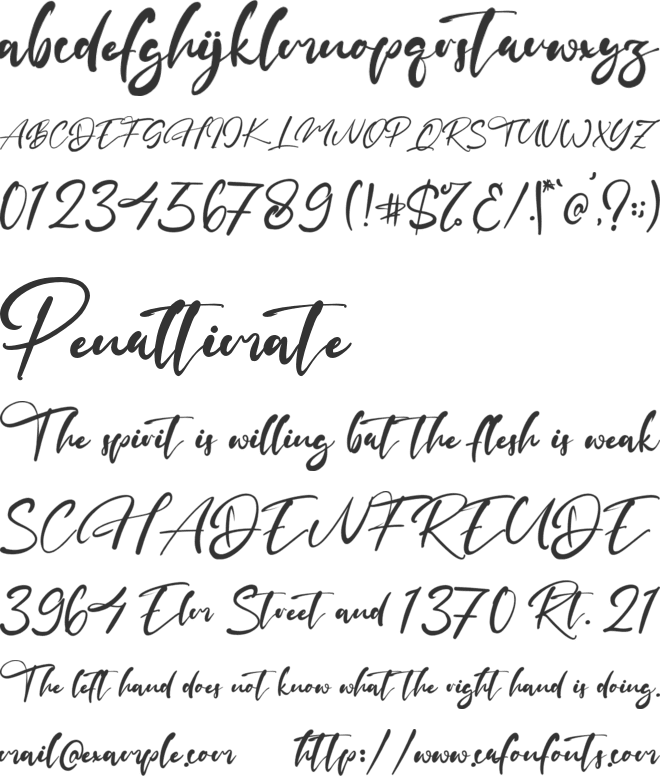 abcdefghijklmnopqrstuvwxyz
ABCDEFGHIJKLMNOPQRSTUVWXYZ
0123456789 (!#$%&/.|*`@',?:;)
Penultimate
The spirit is willing but the flesh is weak
SCHADENFREUDE
3964 Elm Street and 1370 Rt. 21
The left hand does not know what the right hand is doing.
mail@example.com http://www.cufonfonts.com